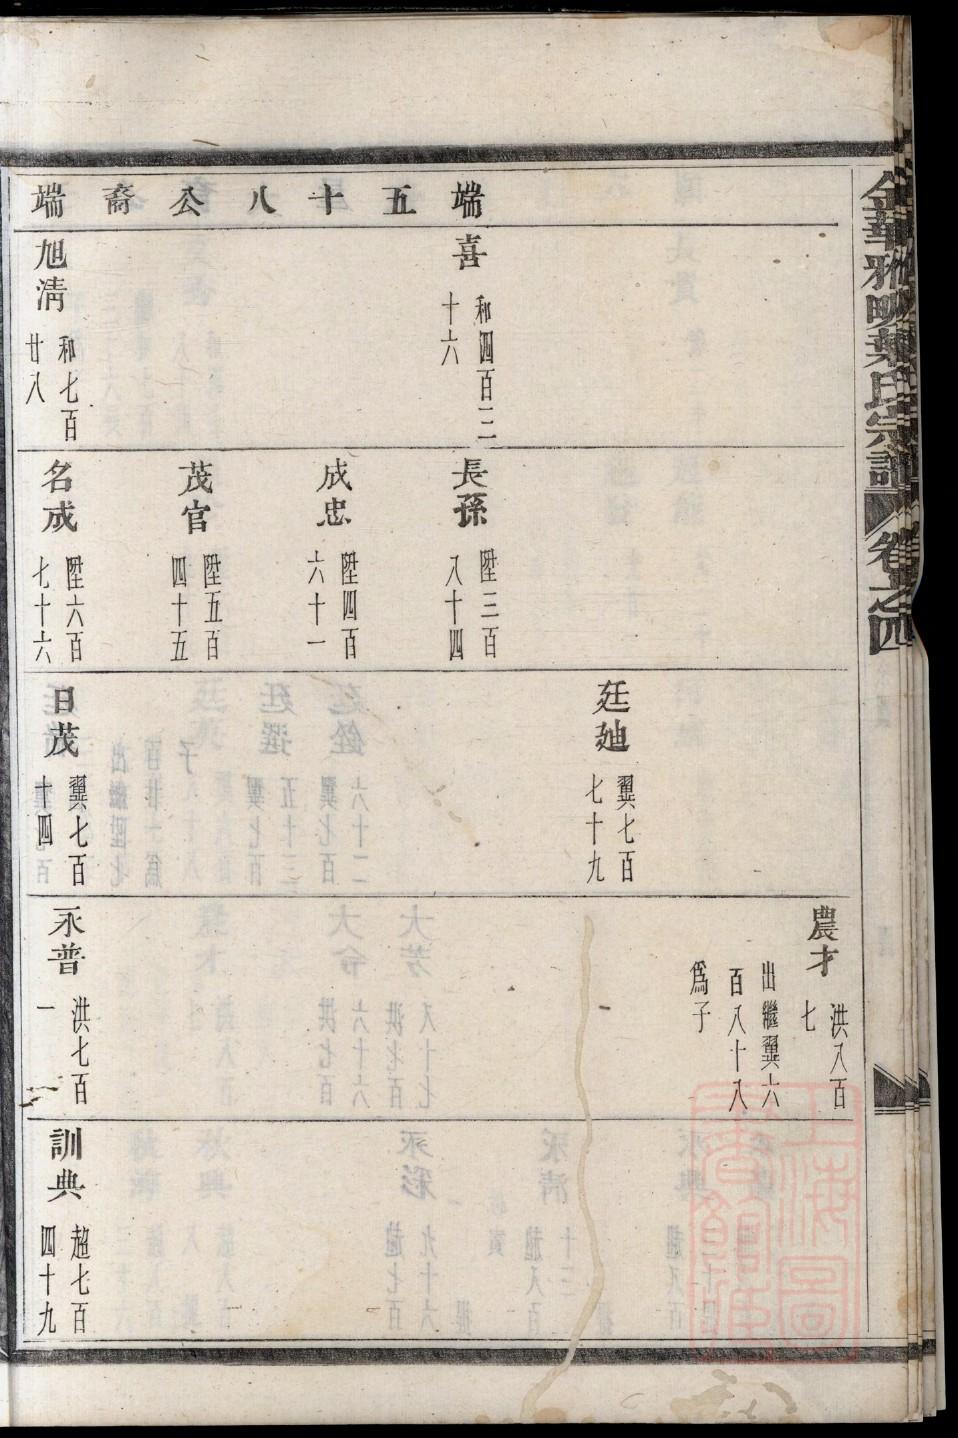 金華雅畈葉氏宗譜 卷之四
端五十八公裔端
喜
和四百二
十六
旭清
和七百
廿八
長孫
陞三百
八十四
成忠
陞四百
六十一
茂官
陞五百
四十五
名成
陞六百
七十六
廷廸
翼七百
七十九
日茂
翼七百
十四
農才
洪八百
七
出繼翼六
百八十八
爲子
永普
洪七百
一
訓典
超七百
四十九
上海圖
書館藏